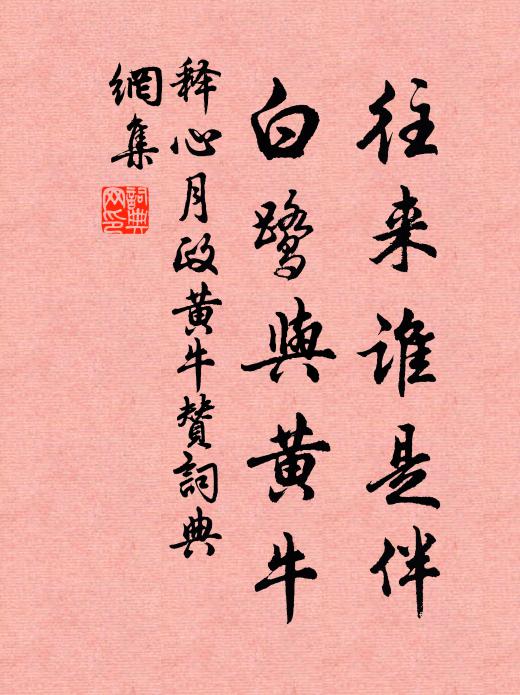 往来谁是伴
白鹭與黄牛
释心月政黄牛赞詞典
網集
詞典
网印